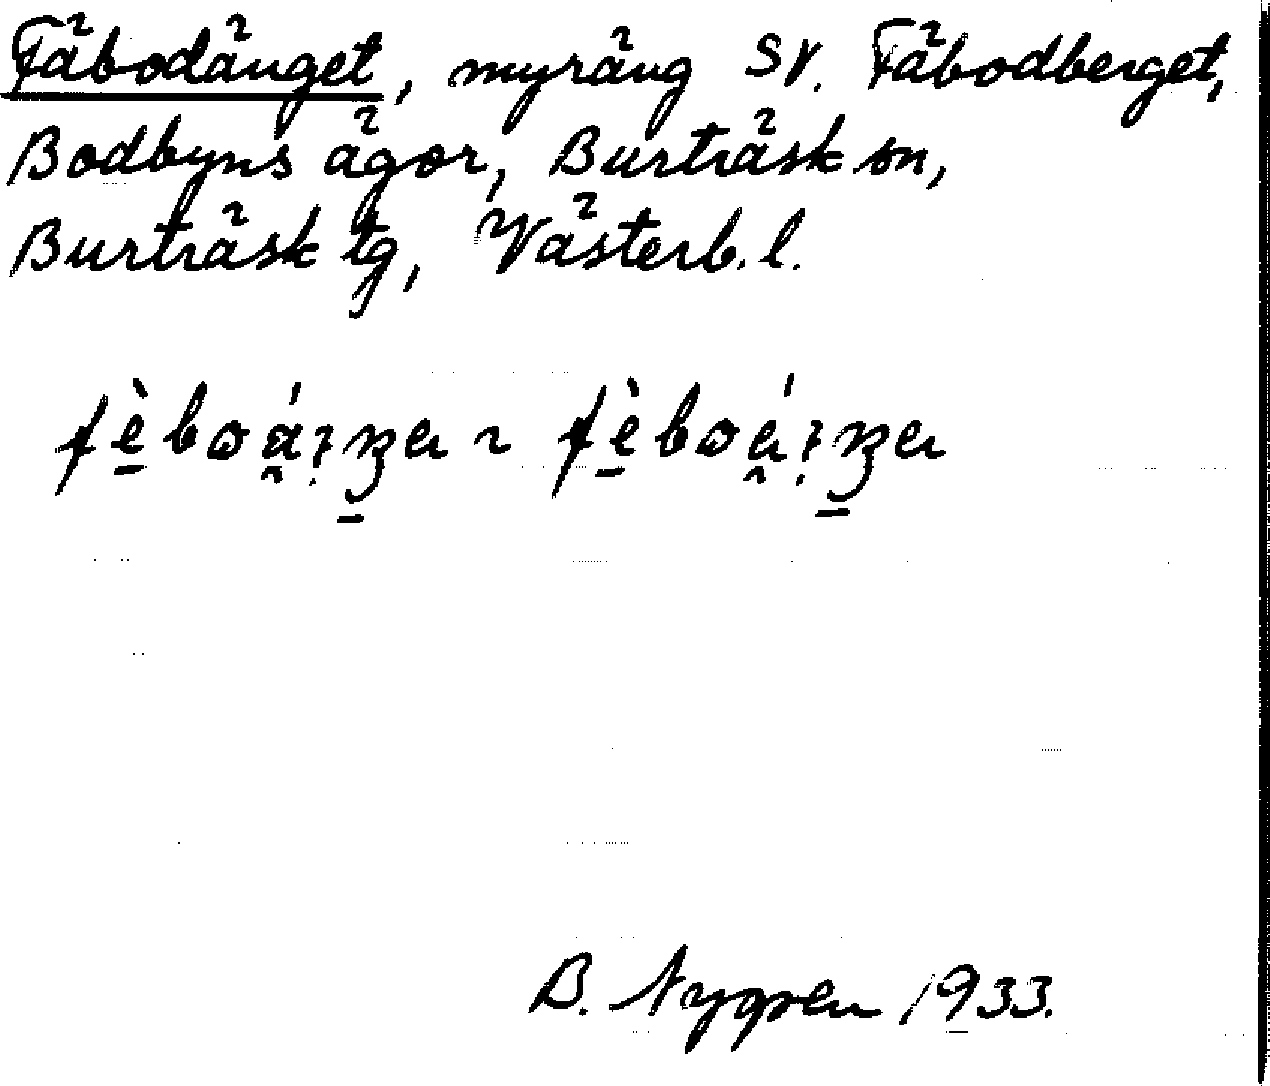 Fäbodänget, myräng SV. Fäbodberget,
Bodbyns ägor, Burträsk sn,
Burträsk tg, Västerb. l.
B. Nygren 1933.